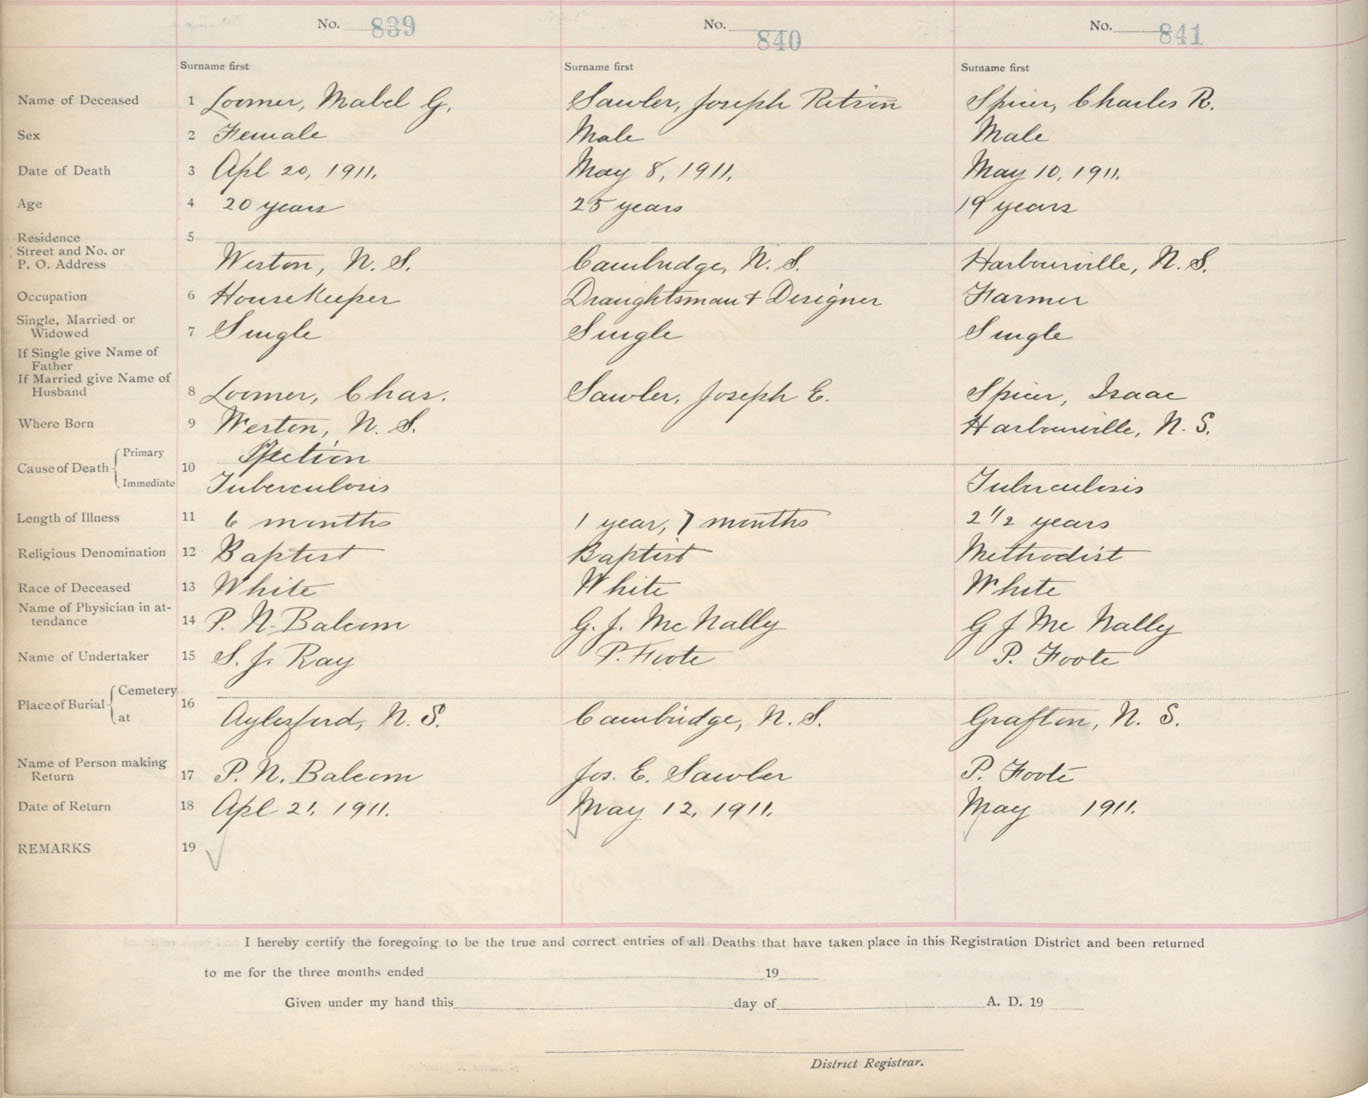 No. 839 No. 840 No. 841
Surname first Surname first Surname first
Name of Deceased 1 Loomer, Mabel G. Sawler, Joseph Spicer, Charles R.
Sex 2 Female Male Male
Date of Death 3 Apl 20, 1911. May 8, 1911. May 10, 1911.
Age 4 20 years 25 years 19 years
Residence 5
Street and No. or
P. O. Address Weston, N. S. Cambridge, N. S. Harbourville, N. S.
Occupation 6 Housekeeper Draughtsman & Designer Farmer
Single, Married or
Widowed 7 Single Single Single
If Single give Name of
Father
If Married give Name of
Husband 8 Loomer, Chas. Sawler, Joseph E. Spicer, Isaac
Where Born 9 Weston, N. S. Harbourville, N. S.
Cause of Death Primary
10
Immediate Tuberculosis Tuberculosis
Length of Illness 11 6 months 1 year, 7 months 2 1/2 years
Religious Denomination 12 Baptist Baptist Methodist
Race of Deceased 13 White White White
Name of Physician in at-
tendance 14 P. N. Balcom G. J. McNally G J McNally
Name of Undertaker 15 S. J. Ray P. Foote P. Foote
Place of Burial Cemetery
16
at Aylesford, N. S. Cambridge, N. S. Grafton, N. S.
Name of Person making
Return 17 P. N. Balcom Jos. E. Sawler P. Foote
Date of Return 18 Apl 21, 1911. May 12, 1911. May 1911.
REMARKS 19
I hereby certify the foregoing to be the true and correct entries of all Deaths that have taken place in this Registration District and been returned
to me for the three months ended 19
Given under my hand this day of A. D. 19
District Registrar.